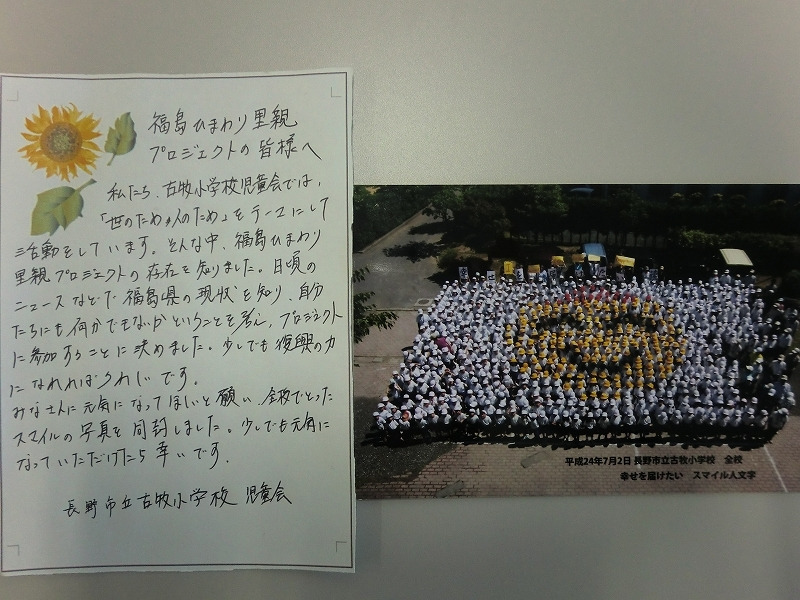 福島ひまわり里親
プロジェクトの皆様へ
私たち、古牧小学校児童会では、
「世のため人のため」をテーマにして
活動をしています。そんな中、福島ひまわり
里親プロジェクトの存在を知りました。日頃の
ニュースなどで福島県の現状を知り、自分
たちにも何かできないかということを考え、プロジェクト
に参加することに決めました。少しでも復興の力
になれればうれしいです。
みなさんに元気になってほしいと願い、全校でとった
スマイルの写真を同封しました。少しでも元気に
なっていただけたら幸いです。
長野市立古牧小学校 児童会
平成24年7月2日 長野市立古牧小学校 全校
幸せを届けたい スマイル人文字